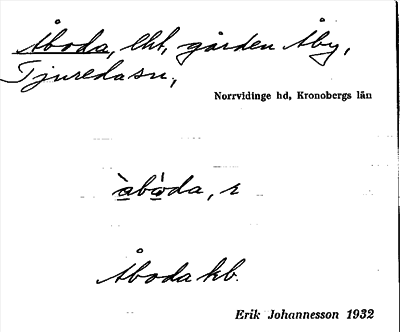 Åboda, lht, gården Åby,
Tjureda sn,
Norrvidinge hd, Kronobergs län
àbòda, r
Åboda kb.
Erik Johannesson 1932